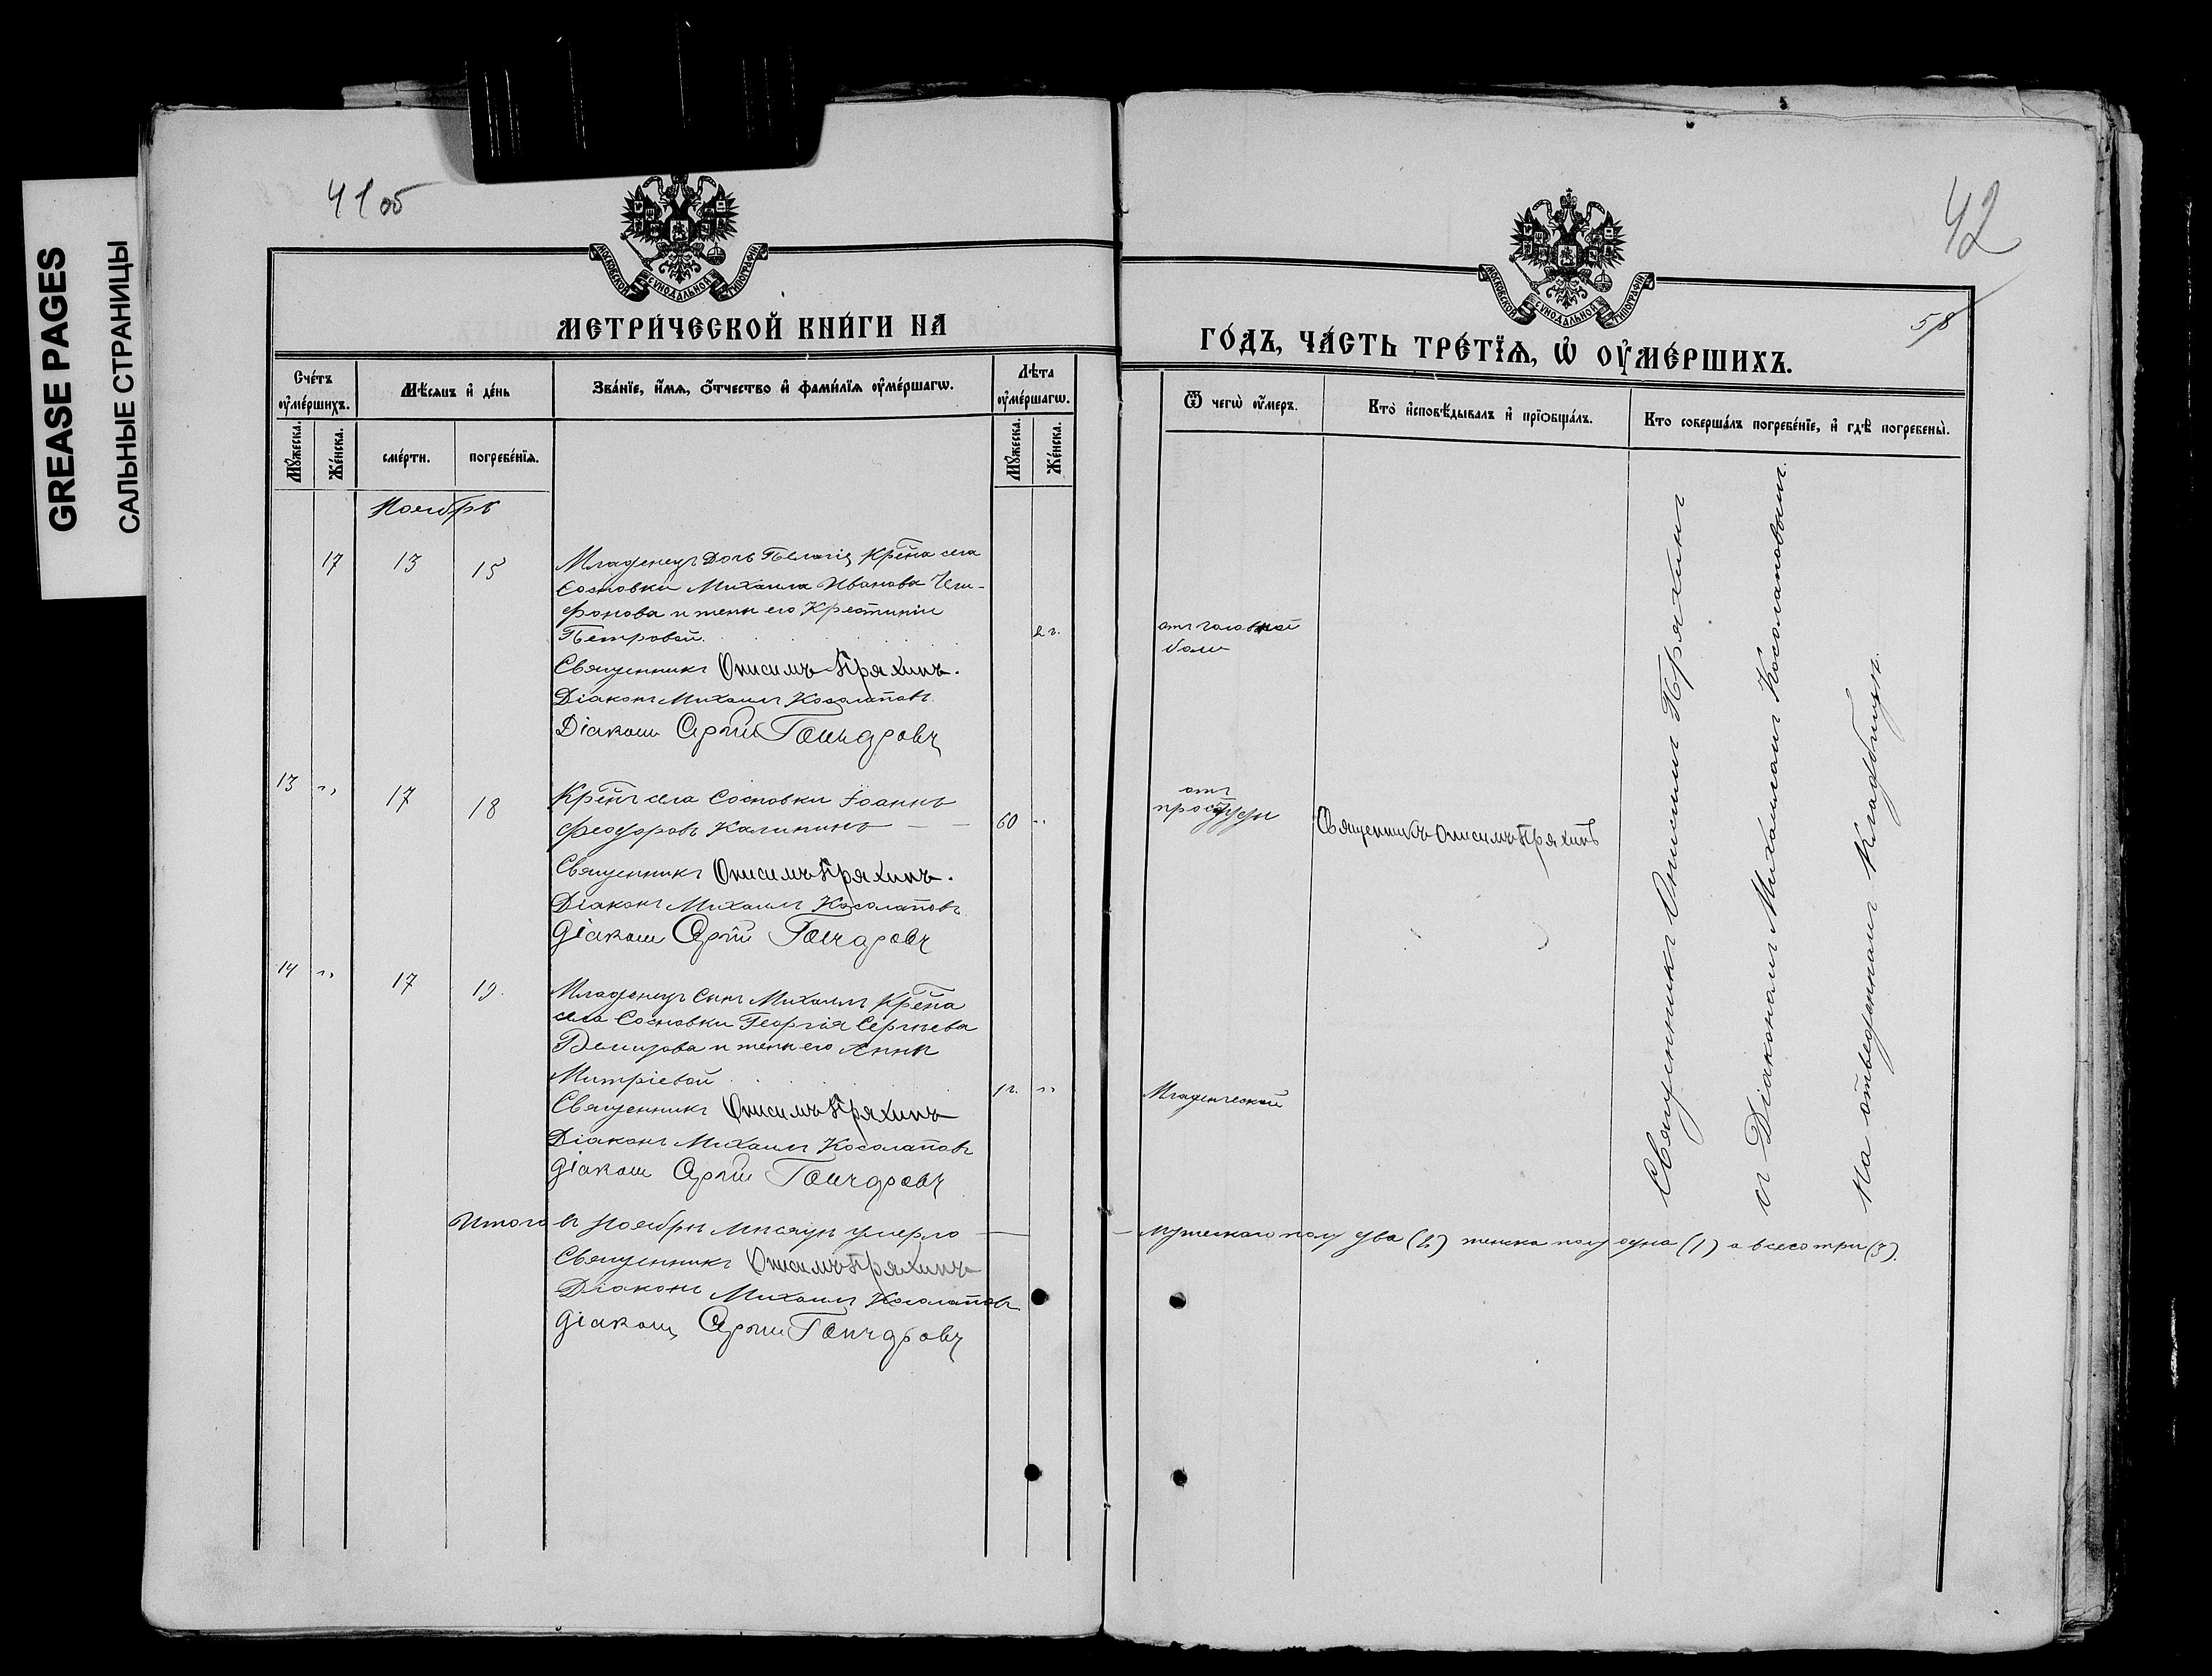 GREASE PAGES
САЛЬНЫЕ СТРАНИЦЫ
41об
МОСКОВСКОЙ СѴНОДАЛЬНОЙ ТИПОГРАФІИ
МЕТРИ́ЧЕСКОЙ КНИ́ГИ НА
Сче́тъ ᲂу҆ме́ршихъ.
Мꙋ́жеска.
Же́нска.
Мѣ́сяцъ и҆ де́нь
сме́рти.
погребе́нїѧ.
Зва́нїе, и҆́мѧ, ѻ҆́тчество и҆ фами́лїѧ ᲂу҆ме́ршагѡ.
Лѣ́та ᲂу҆ме́ршагѡ.
Мꙋ́жеска.
Же́нска.
Ноябрь
17 13 15
Младенецъ Дочь Пелагія Кре-на села
Сосновки Михаила Иванова
фонова и жены его Крестиніи
Петровой. 2 г.
Священникъ Онисимъ Пряхинъ.
Діаконъ Михаилъ Косолаповъ.
Діаконъ Сергій Гончаровъ
13 " 17 18
Кре-нъ села Сосновки Іоаннъ
Феодоровъ Калининъ — — 60 "
Священникъ Онисимъ Пряхинъ.
Діаконъ Михаилъ Косолаповъ.
Діаконъ Сергій Гончаровъ
14 " 17 19.
Младенецъ Сынъ Михаилъ Кре-на
села Сосновки Георгія Сергѣева
и жены его Анны
Митріевой 1 г. "
Священникъ Онисимъ Пряхинъ
Діаконъ Михаилъ Косолаповъ
Діаконъ Сергій Гончаровъ
Итого въ Ноябрѣ мѣсяцѣ умерло —
Священникъ Онисимъ Пряхинъ
Діаконъ Михаилъ Косолаповъ
Діаконъ Сергій Гончаровъ
42
58
МОСКОВСКОЙ СѴНОДАЛЬНОЙ ТИПОГРАФІИ
ГО́ДЪ, ЧА́СТЬ ТРЕ́ТЇѦ, Ѡ҆ ОУ҆МЕ́РШИХЪ.
Ѿ чегѡ̀ ᲂу҆́меръ.
Кто̀ и҆сповѣ́дывалъ и҆ прїѡбща́лъ.
Кто соверша́лъ погребе́нїе, и҆ гдѣ̀ погребены̀.
отъ головной
боли
отъ
простуды
Священникъ Онисимъ Пряхинъ
Младенческой
Священникъ Онисимъ Пряхинъ
съ Діакономъ Михаиломъ Косолаповымъ.
На отведенномъ кладбищѣ.
— мужескаго полу два (2) женска полу одна (1) а всего три (3).